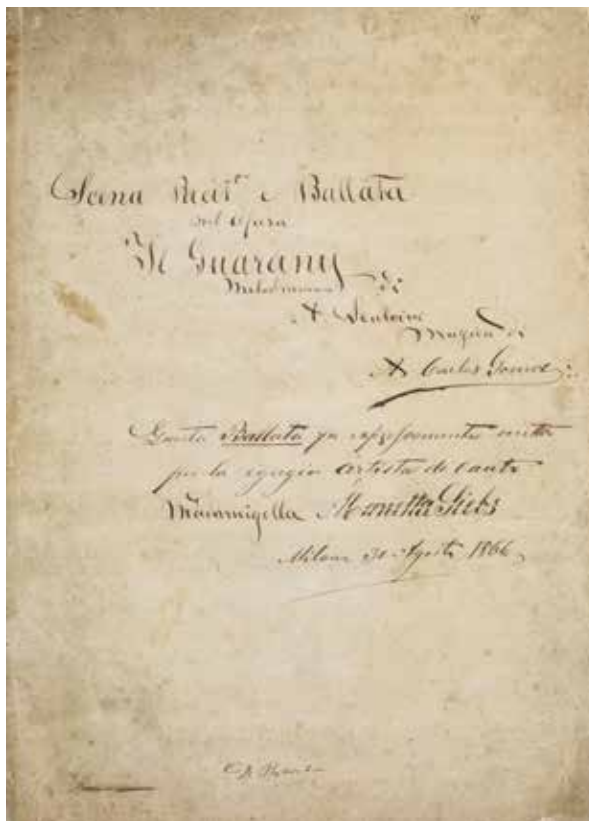 Scena Recit.º e Ballata
nell'opera
Il Guarany
Melodramma di
A. Scalvini
Musica di
A Carlos Gomes
Questa Ballata fu espressamente scritta
per la egregia artista di canto
Madamigella Marietta
Milano 31 Agosto 1866